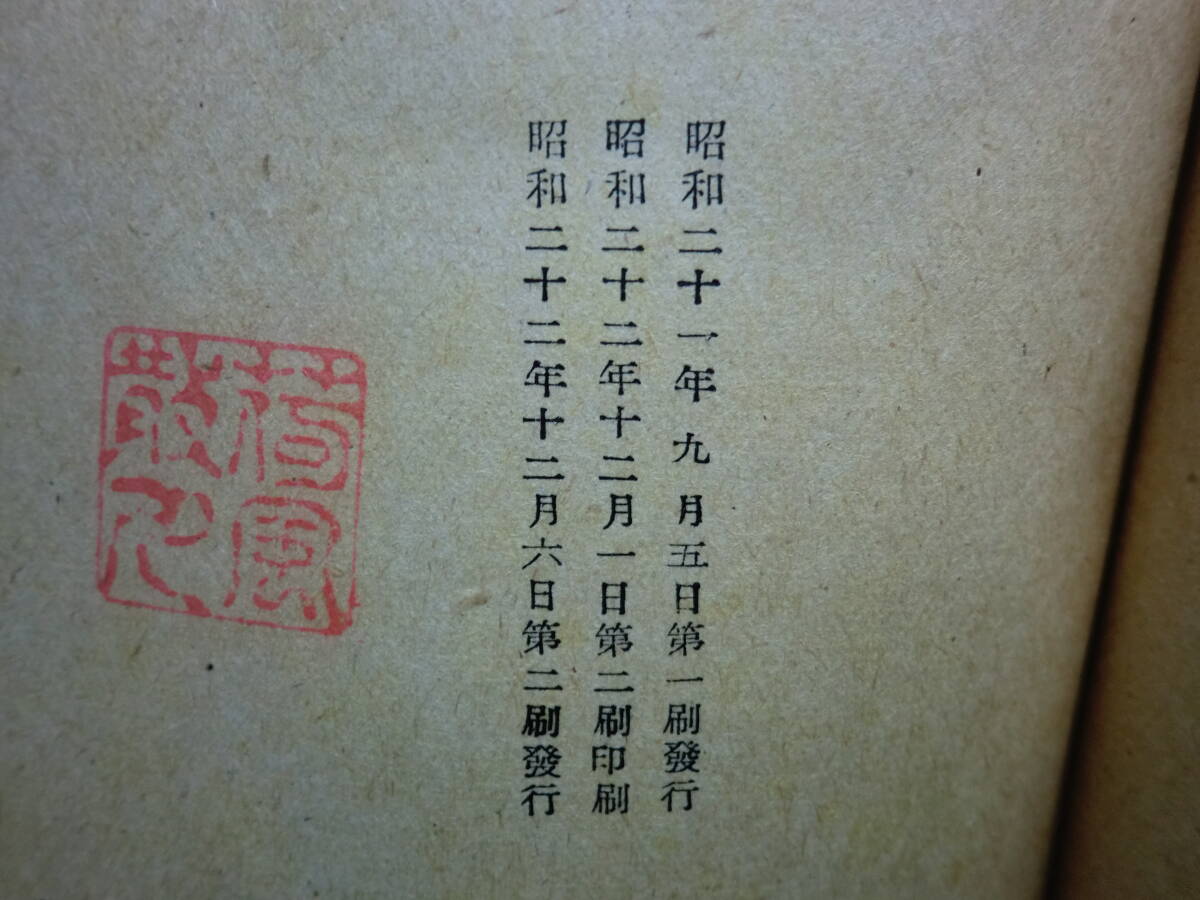 昭和二十一年九月五日第一刷發行
昭和二十二年十二月一日第二刷印刷
昭和二十二年十二月六日第二刷發行
荷風
散人